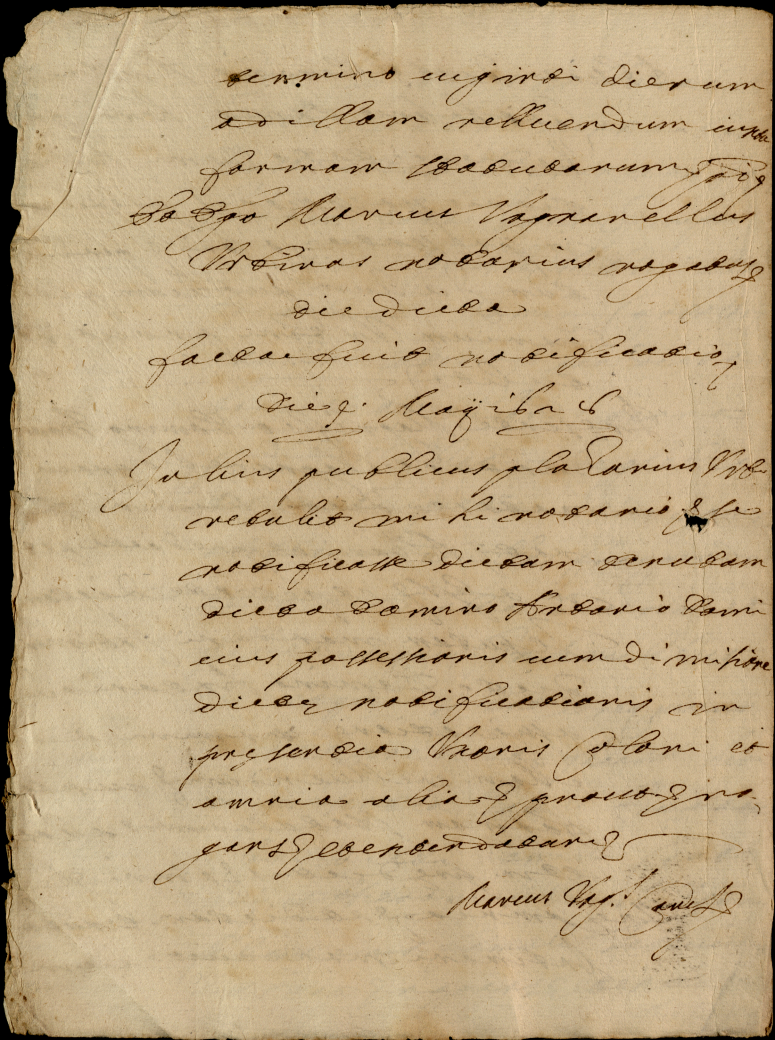 termino viginti dierum
ad illam reluendum iuxta
formam statutorum &
Ego Marcus Vagnarellus
Urbinas notarius rogatus &
die dicta
facta fuit notificatio
Die Maij
Julius publicus plazarius Urb.
retulit mihi notario & se
notificasse dictam tenutam
dicto domino Antonio domi
eius possessionis cum dimissione
dictę notificationis in
pręsentia Uxoris Coloni et
omnia alia & prout & ro
gans &
Marcus Vag.